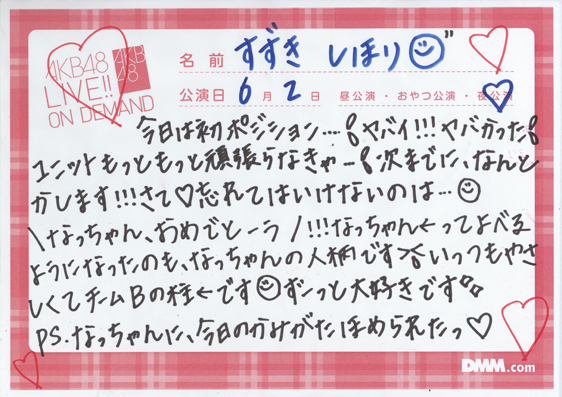 AKB48
LIVE!!
ON DEMAND
AKB
48
名前 すずき しほり
公演日 6月2日 昼公演・おやつ公演・夜公演
今日は初ポジション…ヤバイ!!!ヤバかった
ユニットもっともっと頑張らなきゃー次までに、なんと
かします!!!さて♡忘れてはいけないのは…
\なっちゃん、おめでとーう/!!!なっちゃん←ってよべる
ようになったのも、なっちゃんの人柄ですいっつもやさ
しくてチームBの柱←ですずーっと大好きです
PS.なっちゃんに、今日のかみがたほめられたっ♡
DMM.com